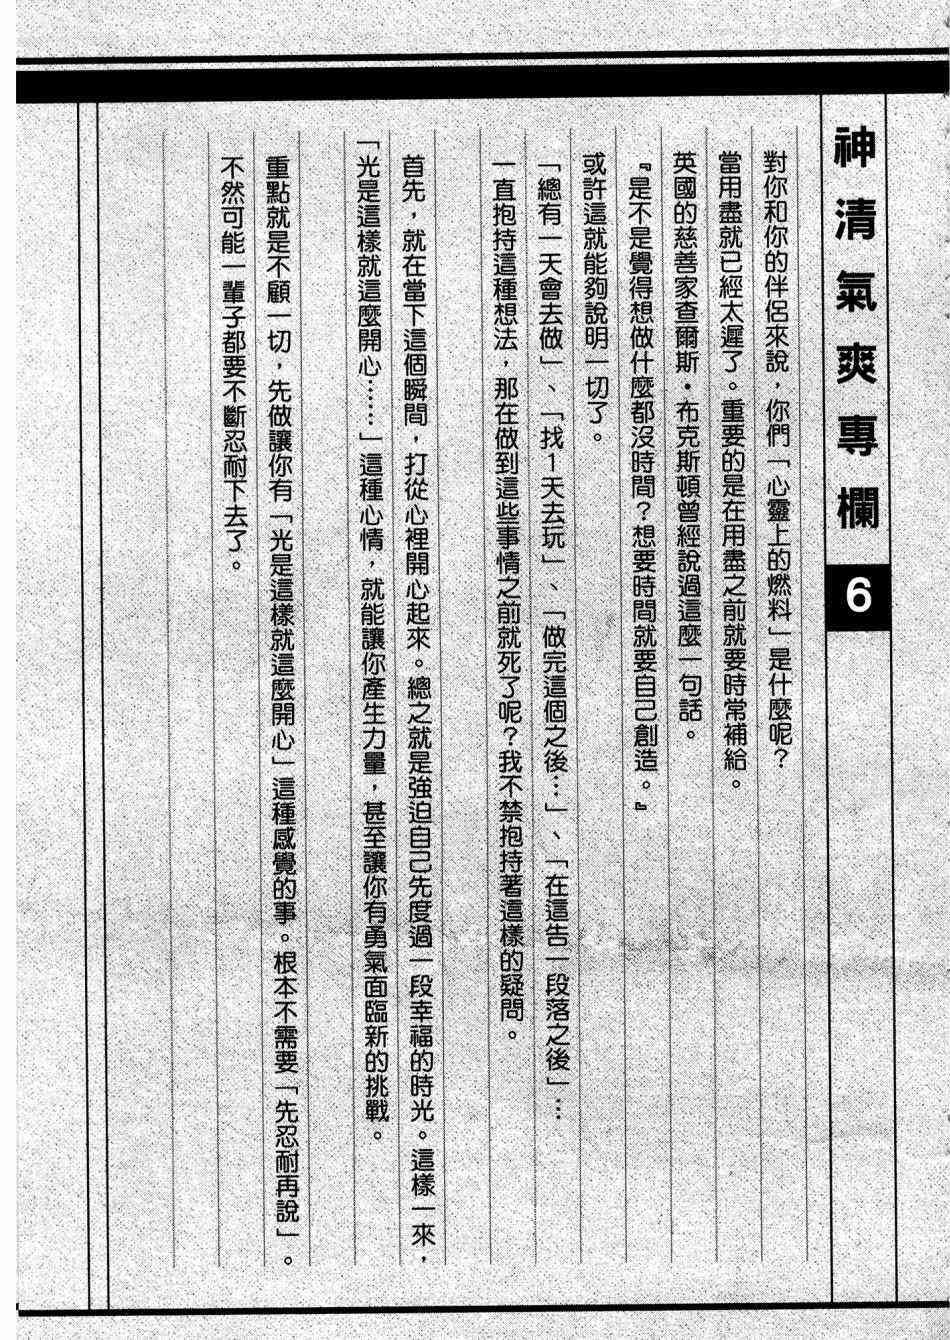 神清氣爽專欄 6
對你和你的伴侶來說，你們「心靈上的燃料」是什麼呢？
當用盡就已經太遲了。重要的是在用盡之前就要時常補給。
英國的慈善家查爾斯・布克斯頓曾經說過這麼一句話。
『是不是覺得想做什麼都沒時間？想要時間就要自己創造。』
或許這就能夠說明一切了。
「總有一天會去做」、「找1天去玩」、「做完這個之後…」、「在這告一段落之後」…
一直抱持這種想法，那在做到這些事情之前就死了呢？我不禁抱持著這樣的疑問。
首先，就在當下這個瞬間，打從心裡開心起來。總之就是強迫自己先度過一段幸福的時光。這樣一來，
「光是這樣就這麼開心……」這種心情，就能讓你產生力量，甚至讓你有勇氣面臨新的挑戰。
重點就是不顧一切，先做讓你有「光是這樣就這麼開心」這種感覺的事。根本不需要「先忍耐再說」。
不然可能一輩子都要不斷忍耐下去了。